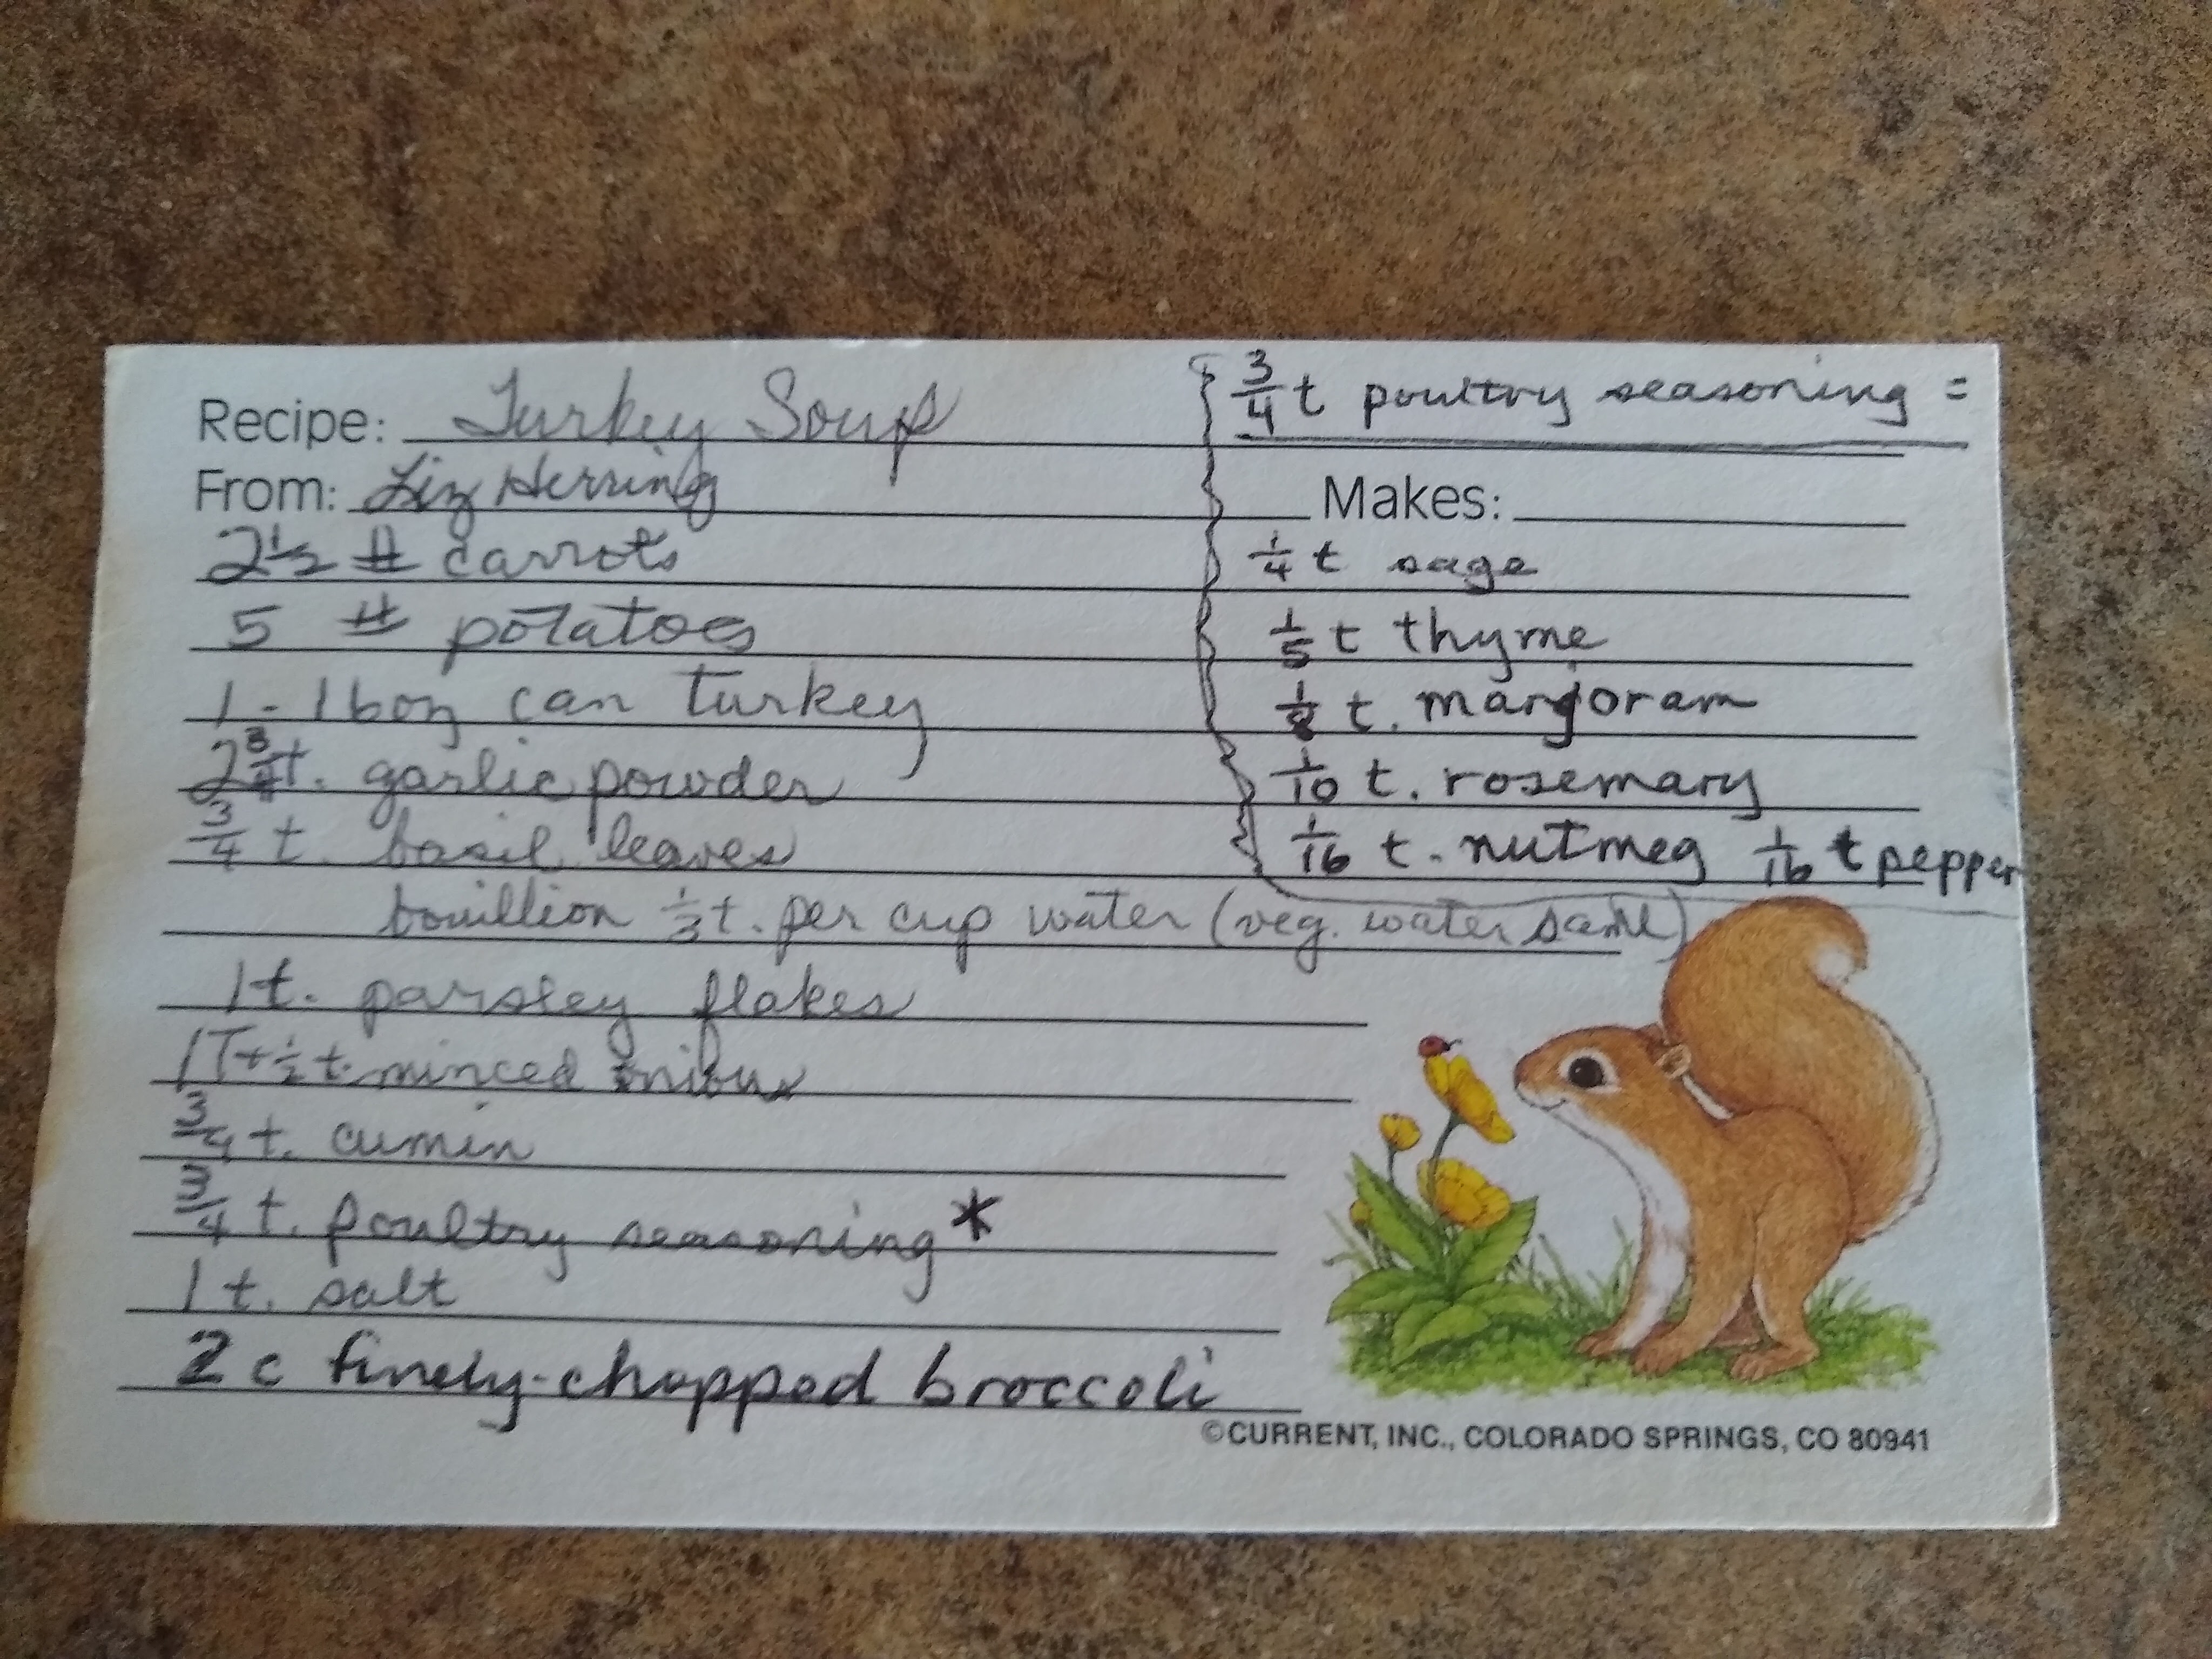 Recipe: Turkey Soup
From: Liz Herring
2 1/2 # carrots
5 # potatoes
1 - 16oz can turkey
2 3/4 t. garlic powder
3/4 t. basil leaves
bouillion 1/3 t. per cup water (veg. water same)
1 t. parsley flakes
1T + 1/2 t. minced onions
3/4 t. cumin
3/4 t. poultry seasoning *
1 t. salt
2 c finely-chopped broccoli
3/4 t poultry seasoning =
Makes:
1/4 t sage
1/5 t thyme
1/8 t. marjoram
1/10 t. rosemary
1/16 t. nutmeg 1/16 t pepper
©CURRENT, INC., COLORADO SPRINGS, CO 80941